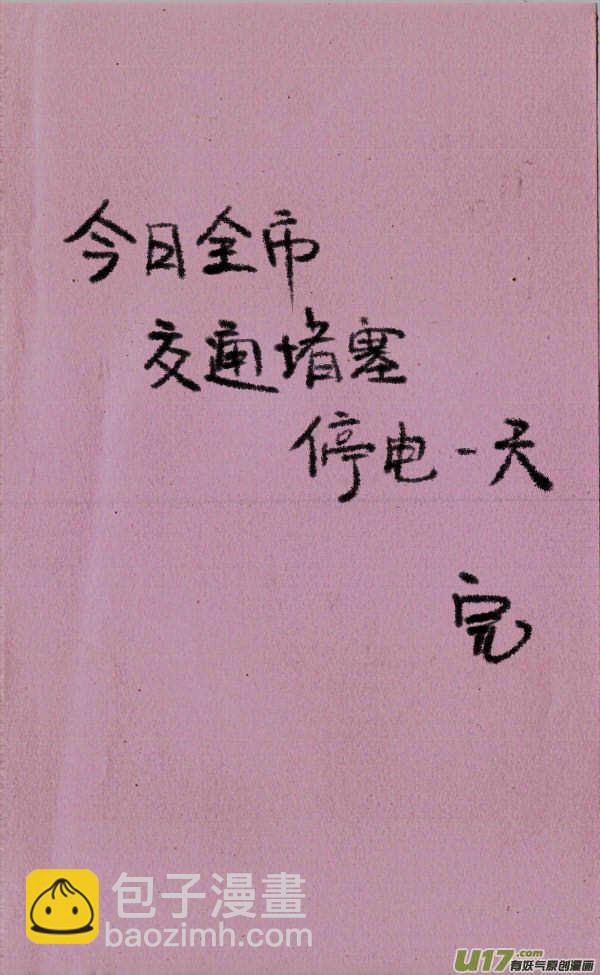 今日全市
交通堵塞
停电一天
完
包子漫畫
baozimh.com
U17.com
有妖气原创漫画